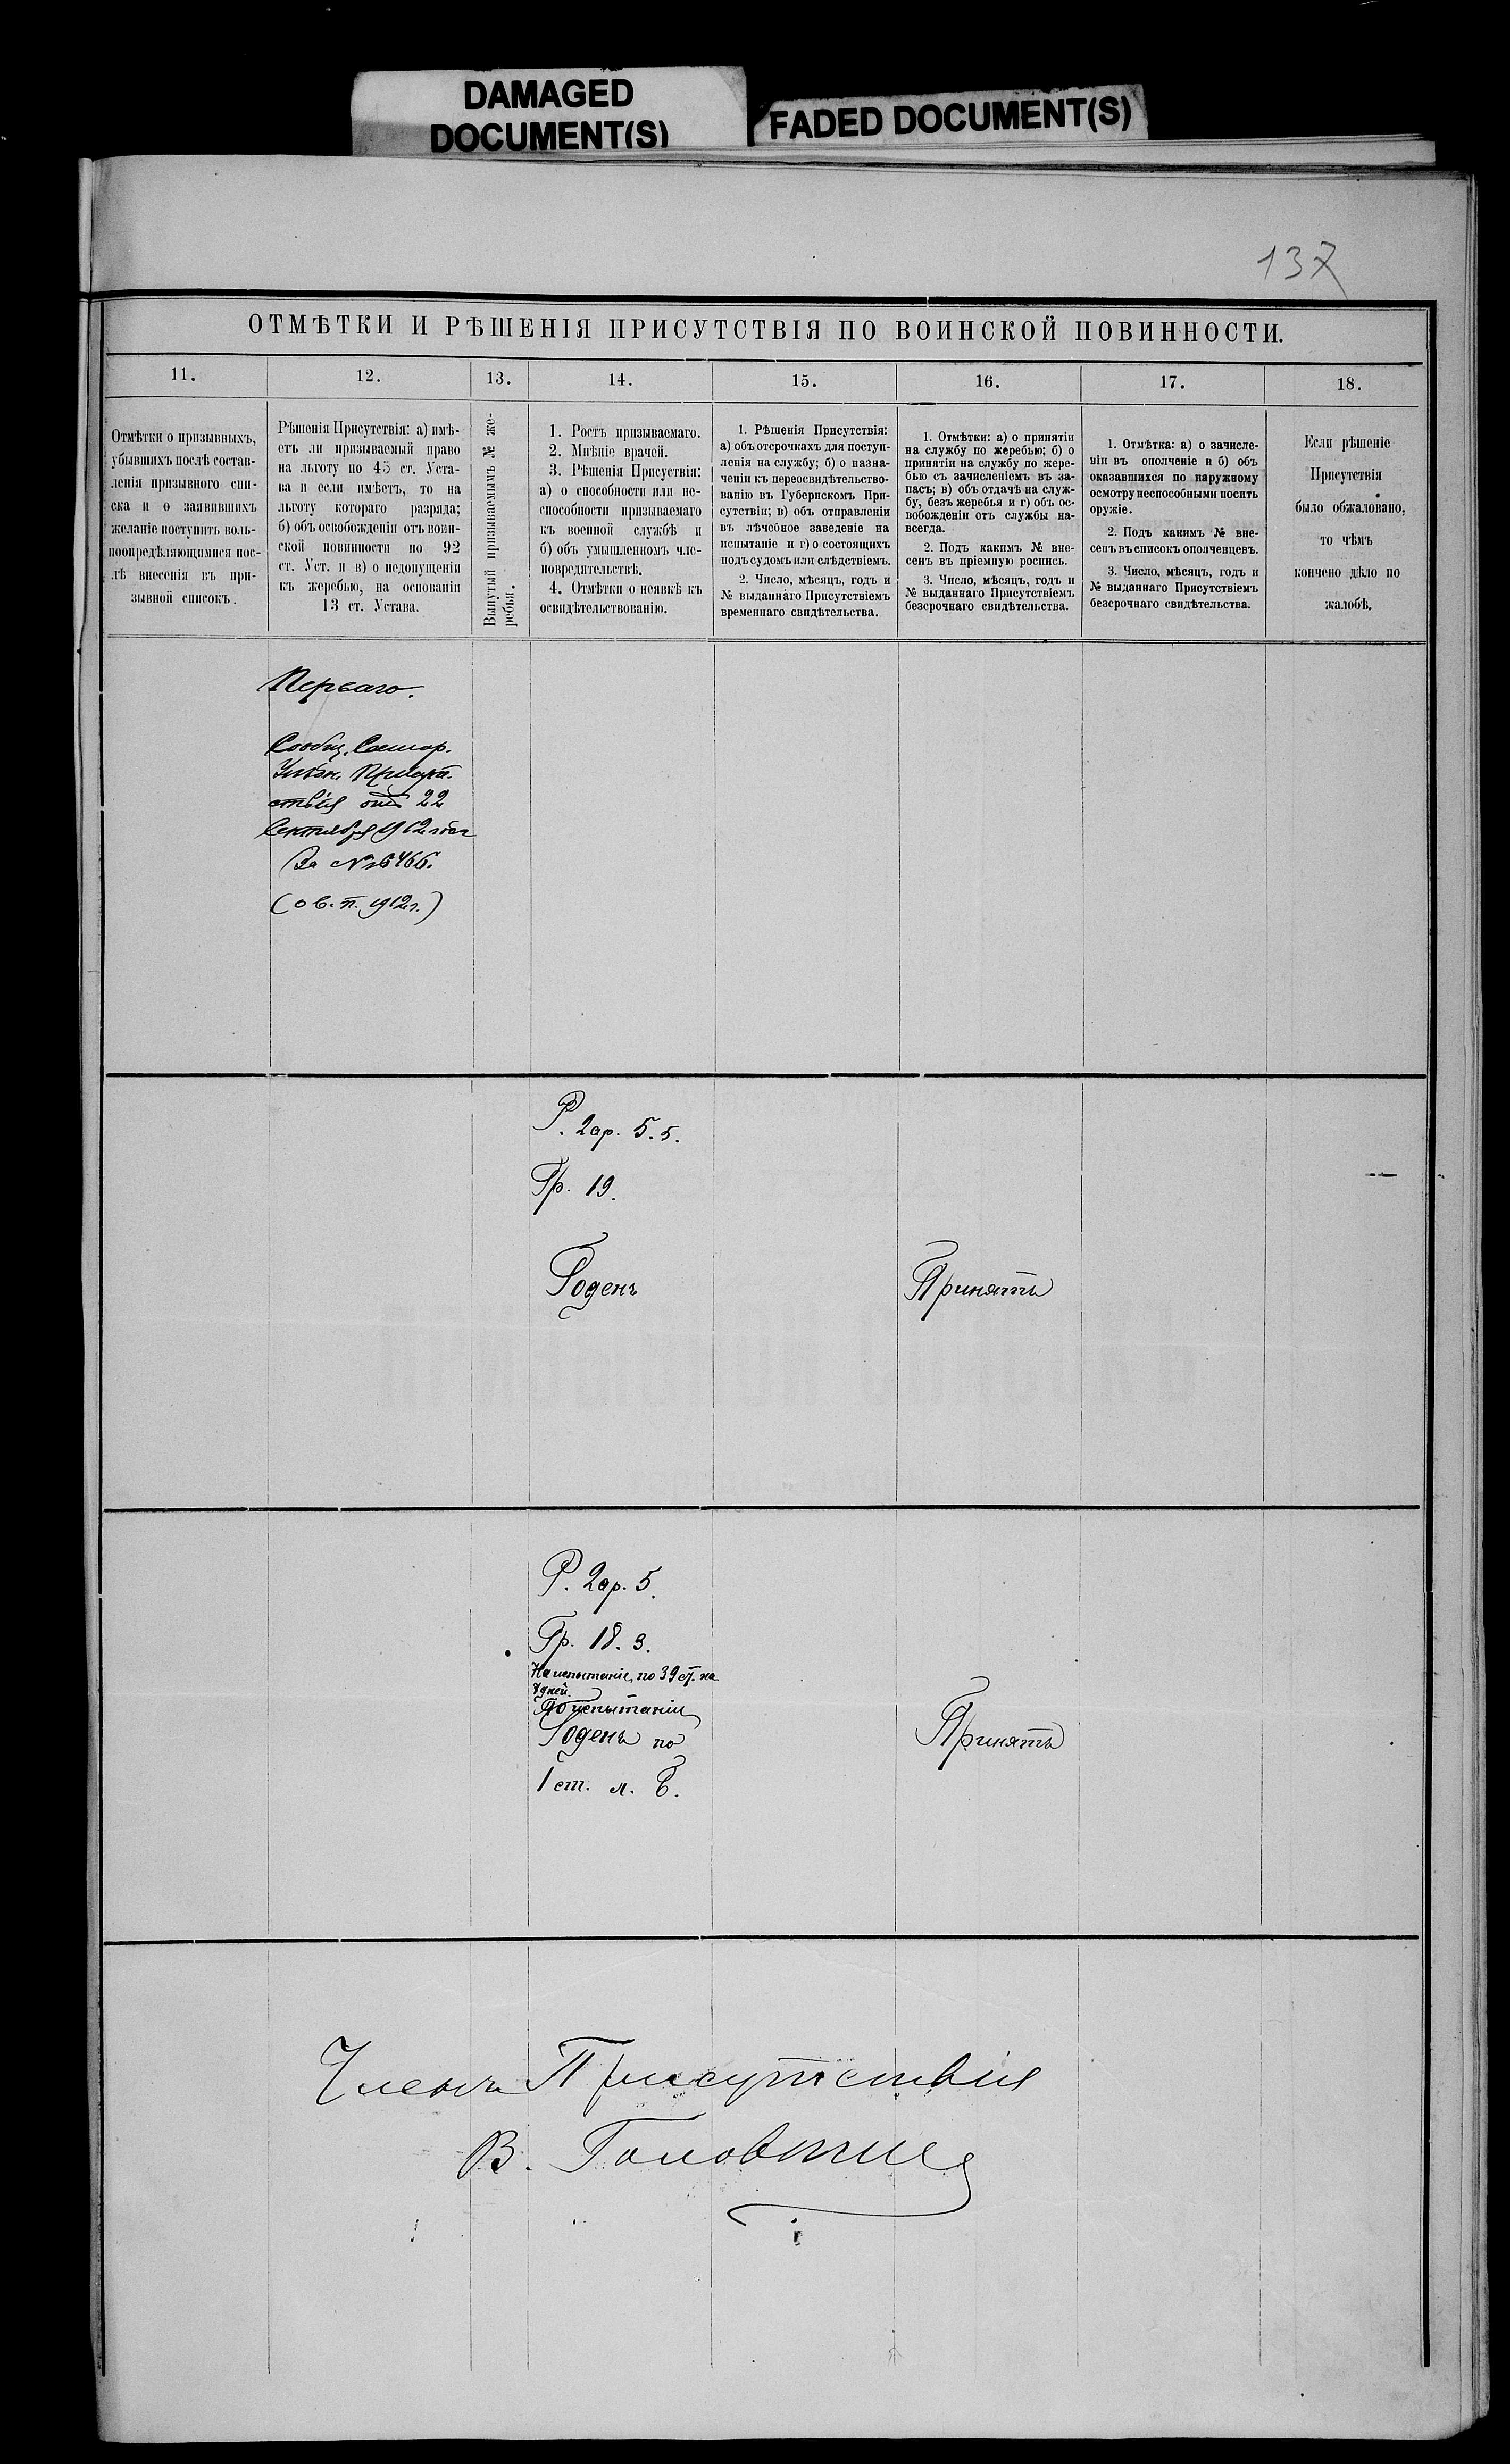 DAMAGED
DOCUMENT(S)
FADED DOCUMENT(S)
137
ОТМѢТКИ И РѢШЕНІЯ ПРИСУТСТВІЯ ПО ВОИНСКОЙ ПОВИННОСТИ.
11.
12.
13.
14.
15.
16.
17.
18.
Отмѣтки о призывныхъ,
убывшихъ послѣ состав-
ленія призывного спи-
ска и о заявившихъ
желаніе поступить воль-
ноопредѣляющимися пос-
лѣ внесенія въ при-
зывной списокъ.
Рѣшенія Присутствія: а) имѣ-
етъ ли призываемый право
на льготу по 45 ст. Уста-
ва и если имѣетъ, то на
льготу котораго разряда;
б) объ освобожденіи отъ воин-
ской повинности по 92
ст. Уст. и в) о недопущеніи
къ жеребью, на основаніи
13 ст. Устава.
Вынутый призываемымъ № же-
ребья.
1. Ростъ призываемаго.
2. Мнѣніе врачей.
3. Рѣшенія Присуствія:
а) о способности или не-
способности призываемаго
къ военной службѣ и
б) объ умышленномъ чле-
новредительствѣ.
4. Отмѣтки о неявкѣ къ
освидѣтельствованію.
1. Рѣшенія Присутствія:
а) объ отсрочкахъ для поступ-
ленія на службу; б) о назна-
ченіи къ переосвидѣтельство-
ванію въ Губернскомъ При-
сутствіи; в) объ отправленіи
въ лѣчебное заведеніе на
испытаніе и г) о состоящихъ
подъ судомъ или слѣдствіемъ.
2. Число, мѣсяцъ, годъ и
№ выданнаго Присутствіемъ
временнаго свидѣтельства.
1. Отмѣтки: а) о принятіи
на службу по жеребью; б) о
принятіи на службу по жере-
бью съ зачисленіемъ въ за-
пасъ; в) объ отдачѣ на служ-
бу, безъ жеребья и г) объ ос-
вобожденіи отъ службы на-
всегда.
2. Подъ какимъ № вне-
сенъ въ пріемную роспись.
3. Число, мѣсяцъ, годъ и
№ выданнаго Присутствіемъ
безсрочнаго свидѣтельства.
1. Отмѣтка: а) о зачисле-
ніи въ ополченіе и б) объ
оказавшихся по наружному
осмотру неспособными носить
оружіе.
2. Подъ какимъ № вне-
сенъ въ списокъ ополченцевъ.
3. Число, мѣсяцъ, годъ и
№ выданнаго Присутствіемъ
безсрочнаго свидѣтельства.
Если рѣшеніе
Присутствія
было обжаловано,
то чѣмъ
кончено дѣло по
жалобѣ.
Перваго.
Сообщ.
Уѣзд. Присут-
ствія отъ 22
Сентября 1912 года
За № 6466.
(о в. п. 1912 г.)
Р. 2 ар. 5. 5.
Гр. 19.
Годенъ
Принятъ
Р. 2 ар. 5.
Гр. 18. 3.
На испытаніе, по 39 ст. на
дней.
По испытаніи
Годенъ по
1 ст. л. Б.
Принятъ
Членъ Присутствія
В.